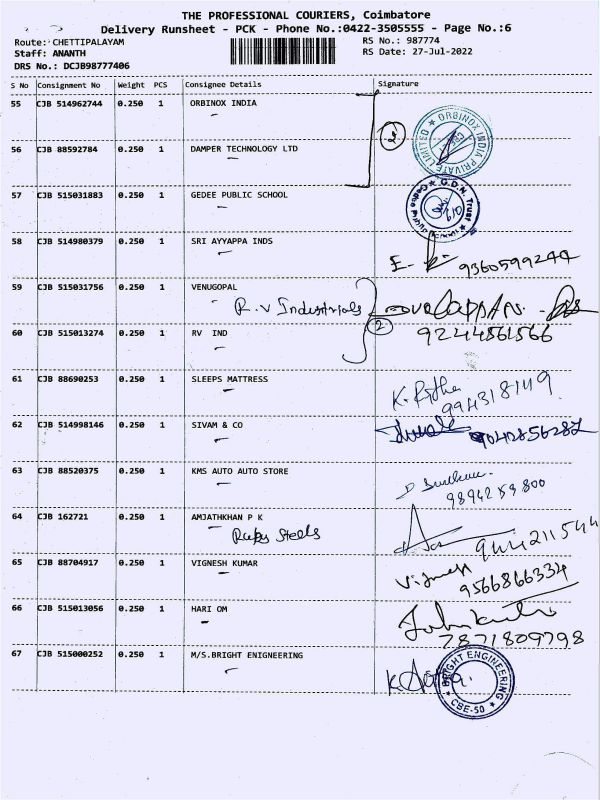 THE PROFESSIONAL COURIERS, Coimbatore
Delivery Runsheet - PCK - Phone No.:0422-3505555 - Page No.:6
Route: CHETTIPALAYAM RS No.: 987774
Staff: ANANTH RS Date: 27-Jul-2022
DRS No.: DCJB98777406
S No Consignment No Weight PCS Consignee Details Signature
55 CJB 514962744 0.250 1 ORBINOX INDIA
2 ORBINOX INDIA PRIVATE LIMITED
56 CJB 88592784 0.250 1 DAMPER TECHNOLOGY LTD
57 CJB 515031883 0.250 1 GEDEE PUBLIC SCHOOL
G.D.N. Trust Gedee Public School
58 CJB 514980379 0.250 1 SRI AYYAPPA INDS
9360599244
59 CJB 515031756 0.250 1 VENUGOPAL
R.V Industrials
60 CJB 515013274 0.250 1 RV IND 2 9244561566
61 CJB 88690253 0.250 1 SLEEPS MATTRESS
62 CJB 514998146 0.250 1 SIVAM & CO 9042856287
63 CJB 88520375 0.250 1 KMS AUTO AUTO STORE
64 CJB 162721 0.250 1 AMJATHKHAN P K
Steels
65 CJB 88704917 0.250 1 VIGNESH KUMAR
9566866334
66 CJB 515013056 0.250 1 HARI OM
7871809798
67 CJB 515000252 0.250 1 M/S.BRIGHT ENIGNEERING
BRIGHT ENGINEERING CBE-50